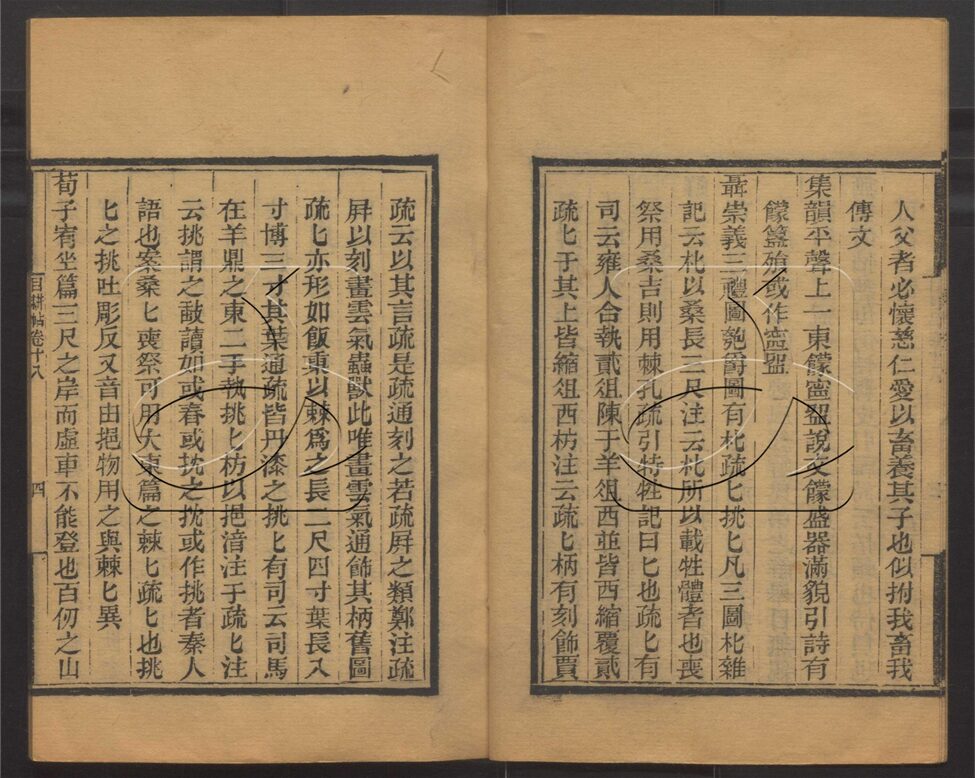 人父者必懷慈仁愛以畜養其子也似拊我畜我
傳文
集韻平聲上一東饛䀄𥁰說文饛盛器滿貌引詩有
饛簋飱或作䀄𥁰
聶崇義三禮圖匏爵圖有朼疏匕挑匕凡三圖朼雜
記云朼以桑長三尺注云朼所以載牲體者也喪
祭用桑吉則用棘孔疏引特牲記曰匕也疏匕有
司云雍人合執貳俎陳于羊俎西並皆西縮覆貳
疏匕于其上皆縮俎西枋注云疏匕柄有刻飾賈
疏云以其言疏是疏通刻之若疏屛之類鄭注疏
屛以刻畫雲氣蟲獸此唯畫雲氣通飾其柄舊圖
疏匕亦形如飯橾以棘爲之長二尺四寸葉長八
寸博三寸其葉通疏皆丹漆之挑匕有司云司馬
在羊鼎之東二手執挑匕枋以挹湆注于疏匕注
云挑謂之㪯讀如或舂或抌之抌或作挑者秦人
語也案桑匕喪祭可用大東篇之棘匕疏匕也挑
匕之挑吐彫反又音由挹物用之與棘匕異
荀子宥坐篇三尺之岸而虛車不能登也百仞之山
目耕帖卷十八
四